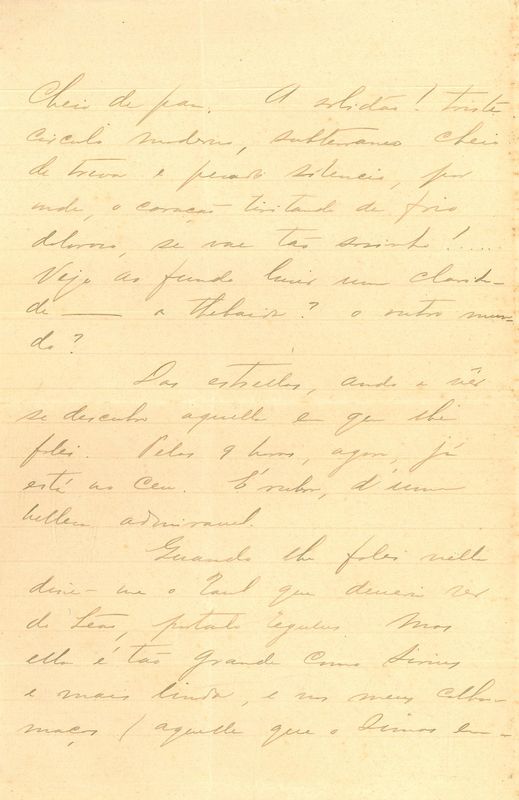 Cheio de paz. A solidão! triste
circulo moderno, subterraneo cheio
de treva e pesado silencio, por
onde, o coração tiritando de frio
doloroso, se vae tão sosinho!.....
Vejo ao fundo luzir uma clarida-
de — a Thebaida? o outro mun-
do?
Das estrellas, ando a vêr
se descubro aquella em que lhe
falei. Pelas 9 horas, agora, já
está no ceu. É rubra, d'uma
belleza admiravel.
Quando lhe falei nella
disse-me o Raul que deveria ser
do Leão, Regulus Mas
ella é tão grande como Sirius
e mais linda, e nos meus calha-
maços (aquelle que o Dimas em-